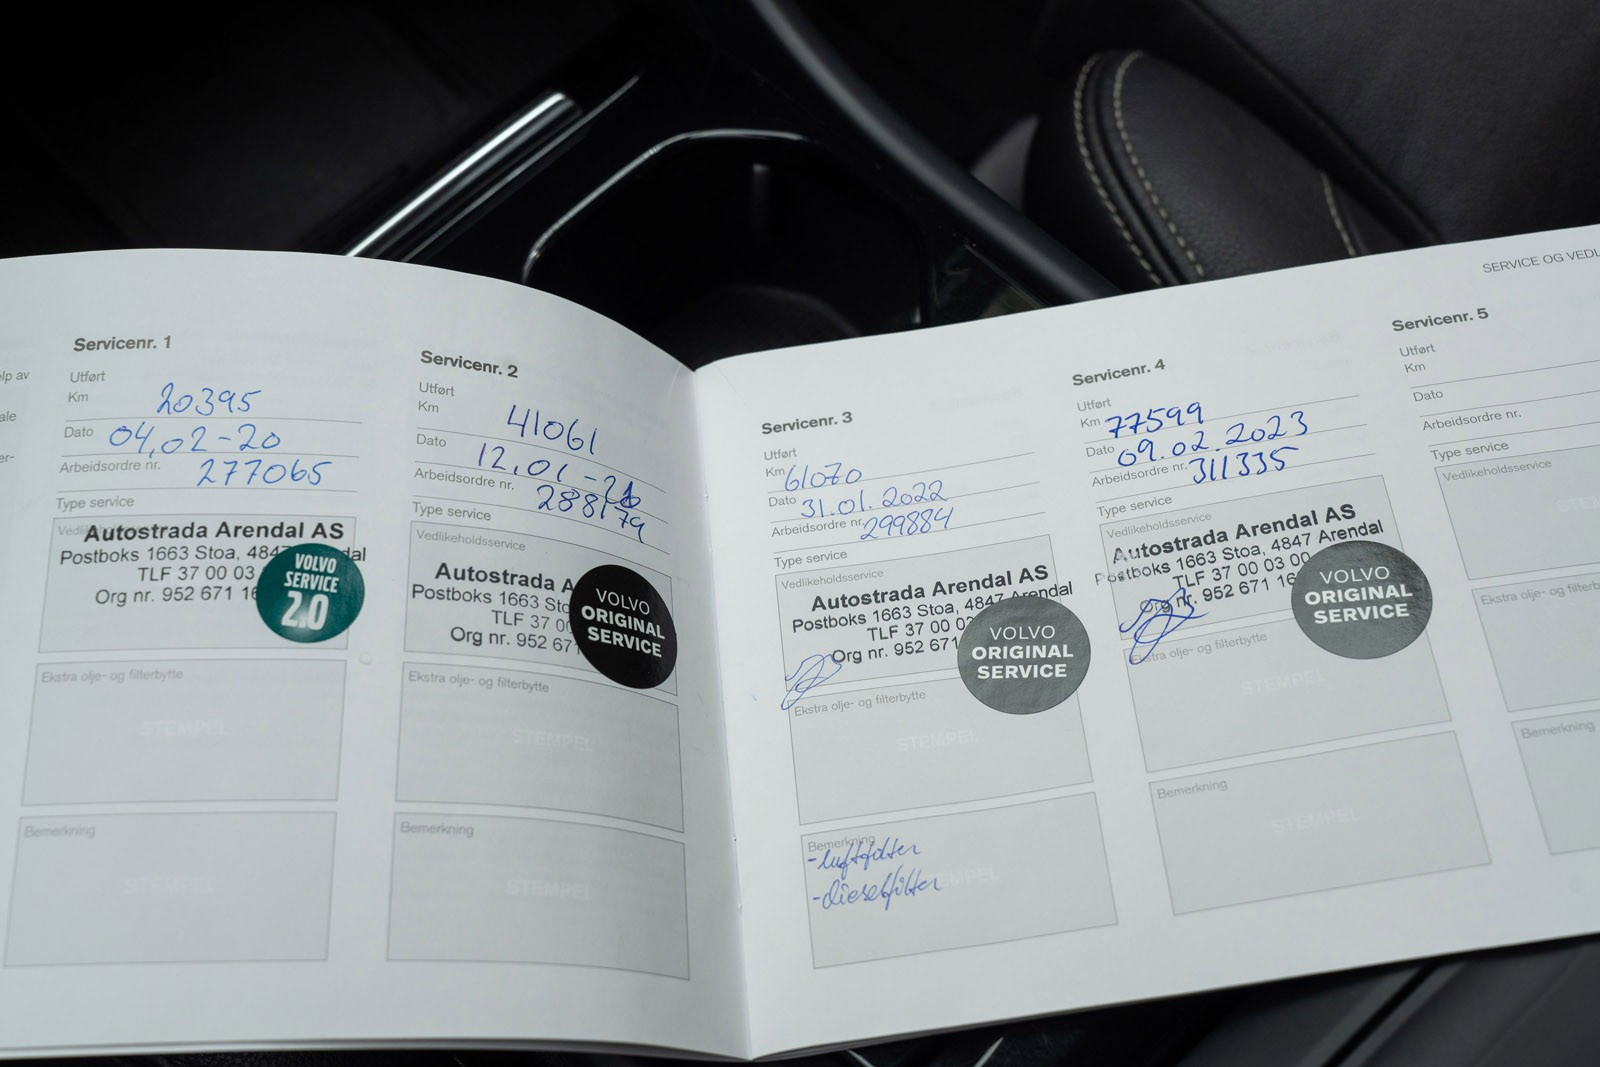 SERVICE OG VEDL
lp av
ale
er-
Servicenr. 1
Utført
Km 20395
Dato 04,02-20
Arbeidsordre nr. 277065
Type service
Vedlikeholdsservice
Autostrada Arendal AS
Postboks 1663 Stoa, 4847 Arendal
TLF 37 00 03
Org nr. 952 671 16
VOLVO
SERVICE
2.0
Ekstra olje- og filterbytte
STEMPEL
Bemerkning
STEMPEL
Servicenr. 2
Utført
Km 41061
Dato 12,01-21
Arbeidsordre nr. 288179
Type service
Vedlikeholdsservice
Autostrada A
Postboks 1663 Sto
TLF 37 00
Org nr. 952 671
VOLVO
ORIGINAL
SERVICE
Ekstra olje- og filterbytte
STEMPEL
Bemerkning
STEMPEL
Servicenr. 3
Utført
Km 61070
Dato 31.01.2022
Arbeidsordre nr. 299884
Type service
Vedlikeholdsservice
Autostrada Arendal AS
Postboks 1663 Stoa, 4847 Arendal
TLF 37 00 03
Org nr. 952 671
VOLVO
ORIGINAL
SERVICE
Ekstra olje- og filterbytte
STEMPEL
Bemerkning
-luftfilter
-dieselfilter
STEMPEL
Servicenr. 4
Utført
Km 77599
Dato 09.02.2023
Arbeidsordre nr. 311335
Type service
Vedlikeholdsservice
Autostrada Arendal AS
Postboks 1663 Stoa, 4847 Arendal
TLF 37 00 03 00
Org nr. 952 671 16
VOLVO
ORIGINAL
SERVICE
Ekstra olje- og filterbytte
STEMPEL
Bemerkning
STEMPEL
Servicenr. 5
Utført
Km
Dato
Arbeidsordre nr.
Type service
Vedlikeholdsservice
STEM
Ekstra olje- og filterb
Bemerkning